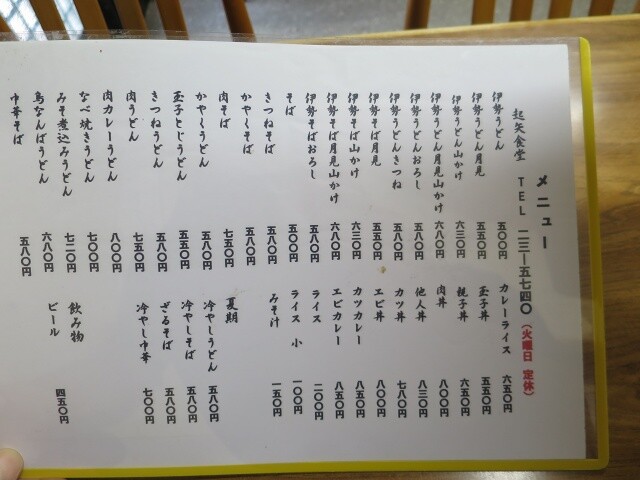 メニュー
起矢食堂 TEL 二三ー五七四〇 (火曜日 定休)
伊勢うどん 五〇〇円
伊勢うどん月見 五五〇円
伊勢うどん山かけ 六三〇円
伊勢うどん月見山かけ 六八〇円
伊勢うどんおろし 五八〇円
伊勢うどんきつね 五八〇円
伊勢そば月見 五五〇円
伊勢そば山かけ 六三〇円
伊勢そば月見山かけ 六八〇円
伊勢そばおろし 五八〇円
そば 五〇〇円
きつねそば 五八〇円
かやくそば 五八〇円
肉そば 七五〇円
かやくうどん 五八〇円
玉子とじうどん 五五〇円
きつねうどん 五八〇円
肉うどん 七五〇円
肉カレーうどん 八〇〇円
なべ焼きうどん 七〇〇円
みそ煮込みうどん 七二〇円
鳥なんばうどん 六八〇円
中華そば 五八〇円
カレーライス 六五〇円
玉子丼 五五〇円
親子丼 六五〇円
肉丼 八〇〇円
他人丼 八三〇円
カツ丼 七八〇円
エビ丼 八〇〇円
カツカレー 八五〇円
エビカレー 八五〇円
ライス 二〇〇円
ライス 小 一〇〇円
みそ汁 一五〇円
夏期
冷やしうどん 五八〇円
冷やしそば 五八〇円
ざるそば 五八〇円
冷やし中華 七〇〇円
飲み物
ビール 四五〇円